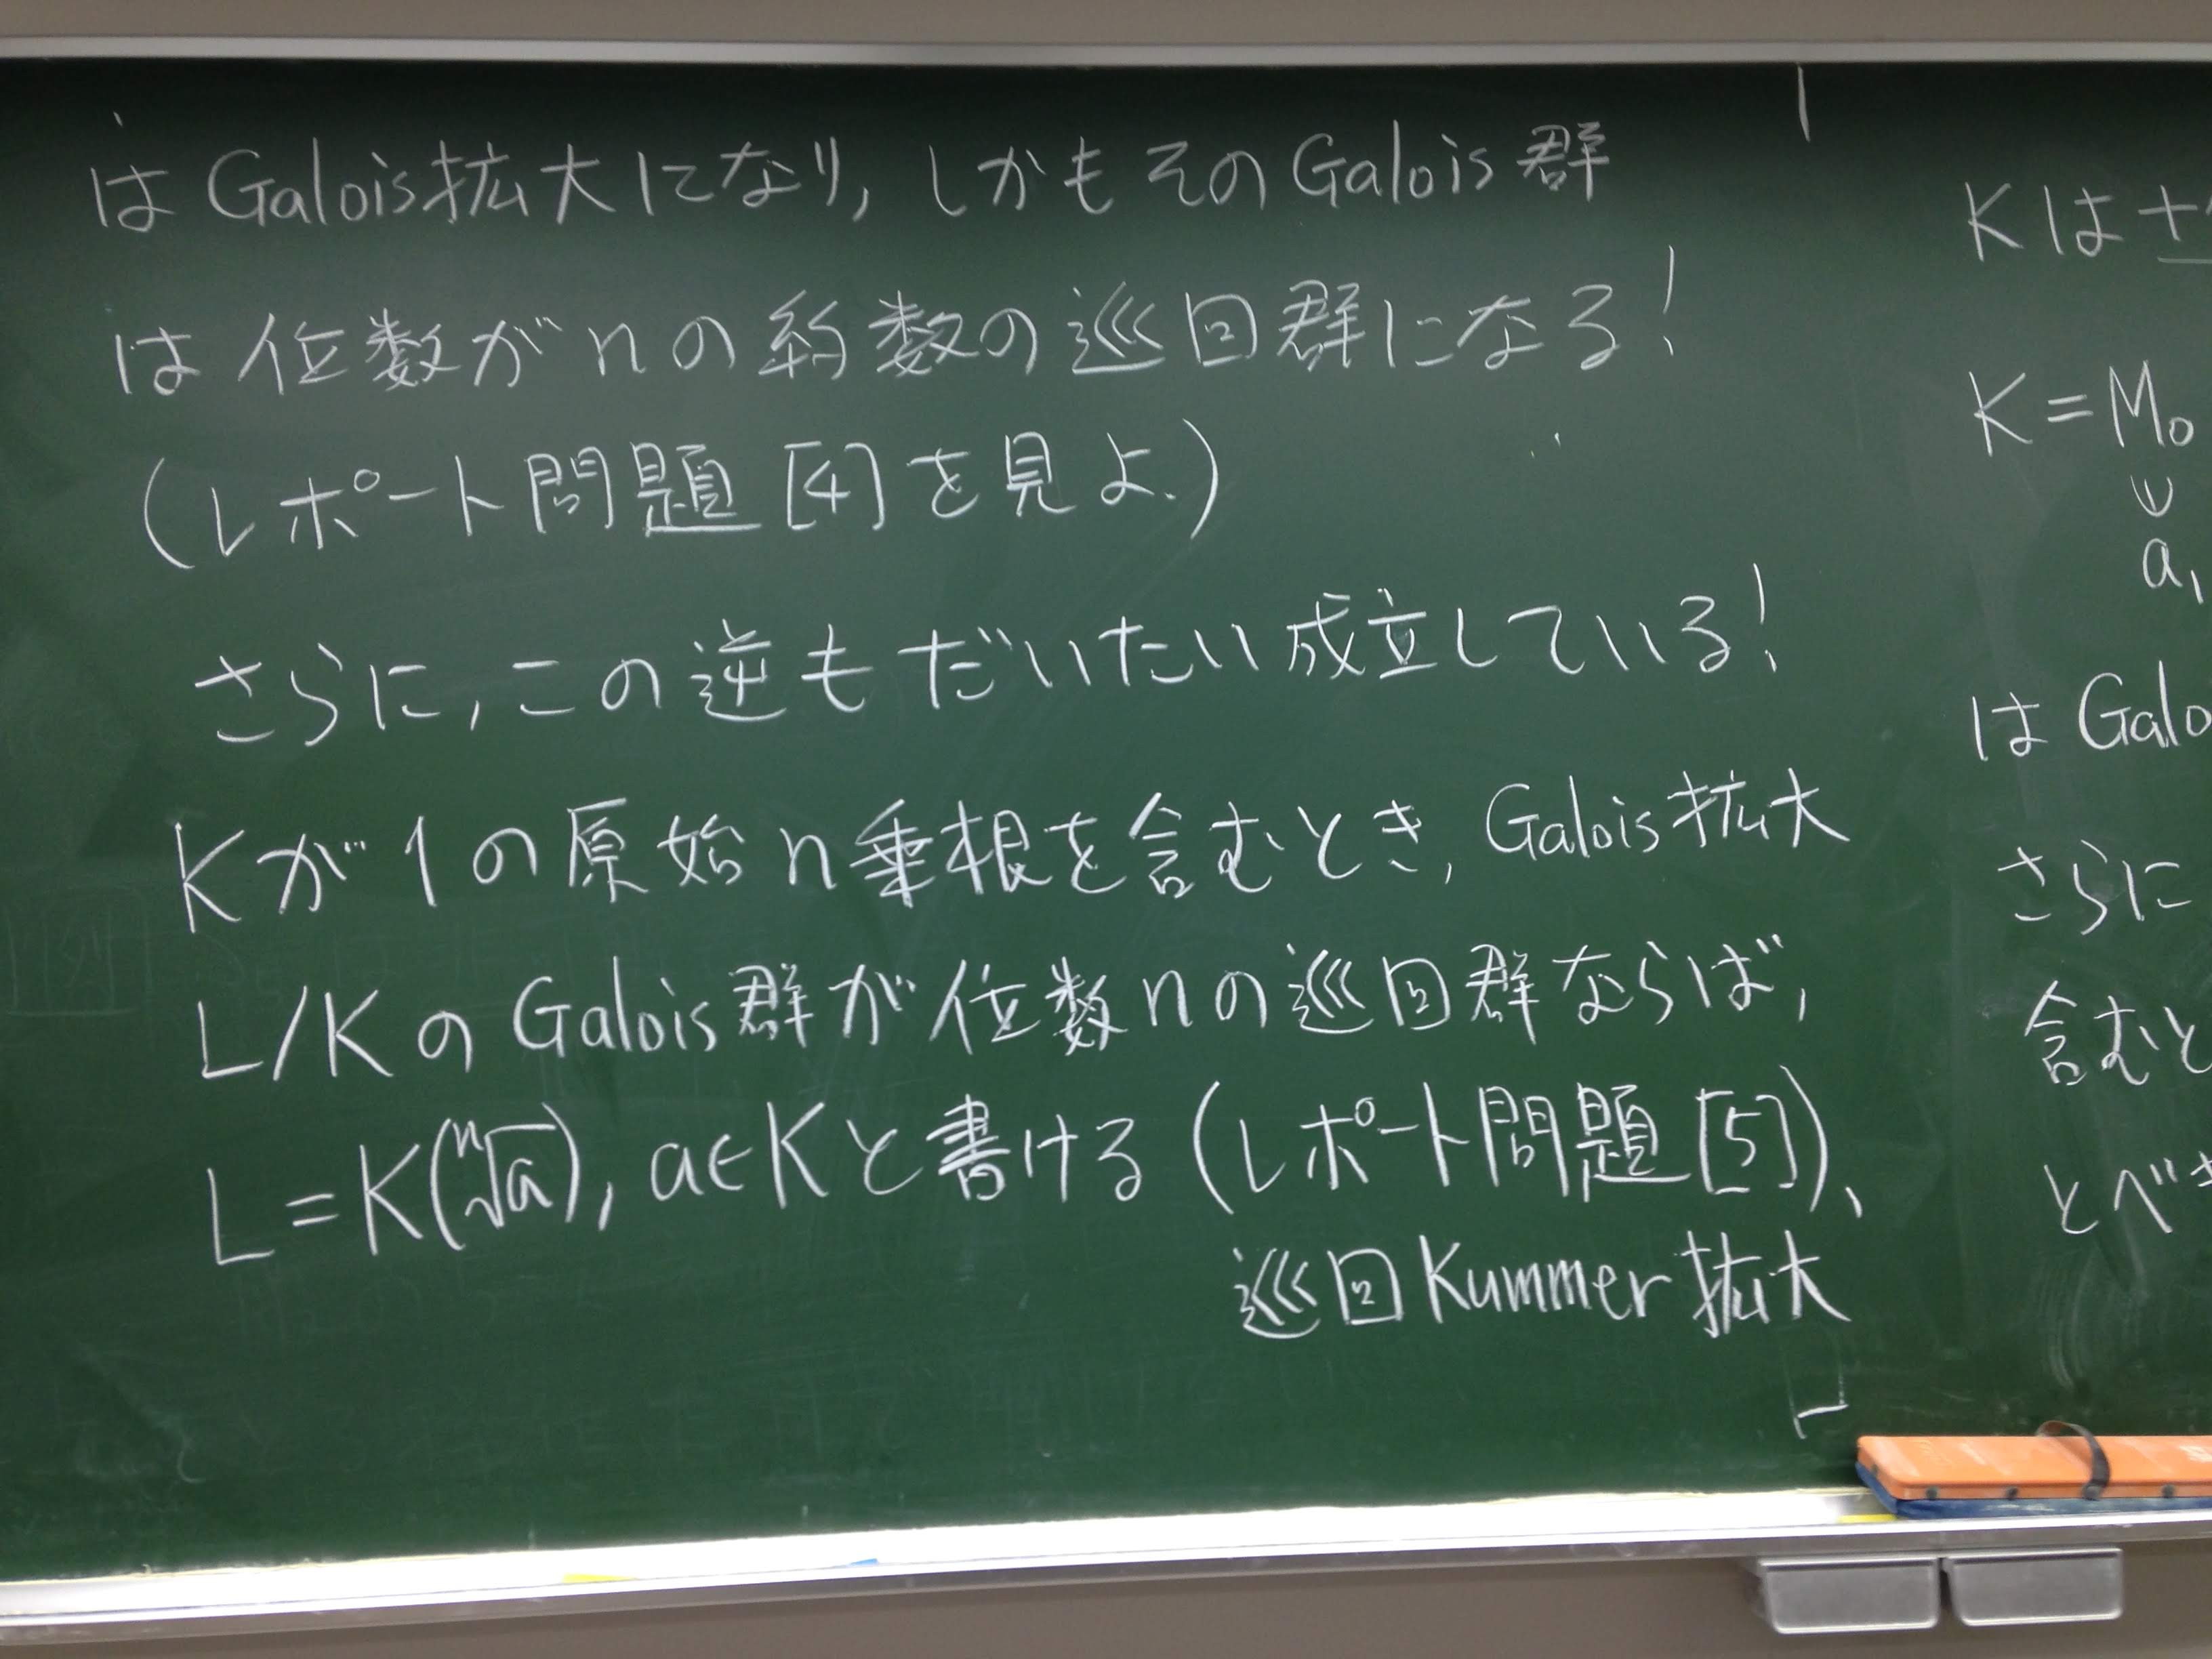 はGalois拡大になり, しかもそのGalois群
は位数がnの約数の巡回群になる!
(レポート問題[4]を見よ.)
さらに, この逆もだいたい成立している!
Kが1の原始n乗根を含むとき, Galois拡大
L/KのGalois群が位数nの巡回群ならば,
L=K(ⁿ√a), a∈Kと書ける(レポート問題[5])、
巡回Kummer拡大
Kは
K=M₀
∪
a₁
はGalo
さらに
含むと
とべき